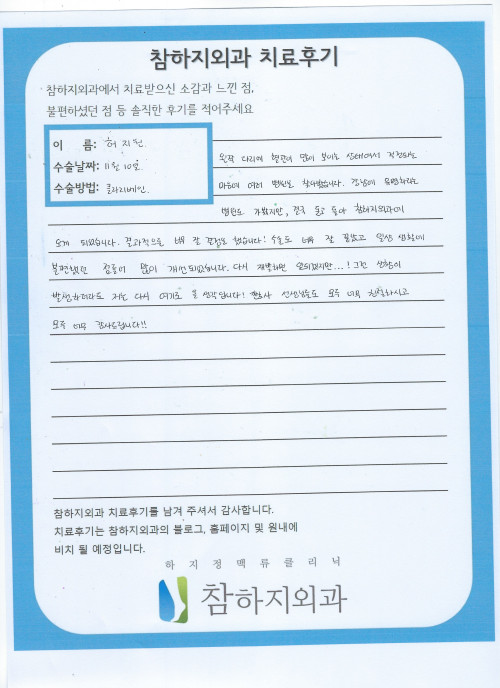 참하지외과 치료후기
참하지외과에서 치료받으신 소감과 느낀 점,
불편하셨던 점 등 솔직한 후기를 적어주세요
이 름: 허지원
수술날짜: 11월 10일
수술방법: 클라리베인
왼쪽 다리에 혈관이 많이 보이는 상태여서 걱정되는
마음에 여러 병원을 찾아봤습니다. 강남에 유명하다는
병원도 가봤지만, 결국 돌고 돌아 참하지외과에
오게 되었습니다. 결과적으로 너무 잘 한것도 했습니다! 수술도 너무 잘 끝났고 일상 생활에
불편했던 점들이 많이 개선되었습니다. 다시 재발하면 안되겠지만...! 그런 상황이
발생하더라도 저는 다시 여기로 올 생각입니다! 간호사 선생님들도 모두 너무 친절하시고
모두 너무 감사드립니다!!
참하지외과 치료후기를 남겨 주셔서 감사합니다.
치료후기는 참하지외과의 블로그, 홈페이지 및 원내에
비치 될 예정입니다.
하지정맥류클리닉
참하지외과